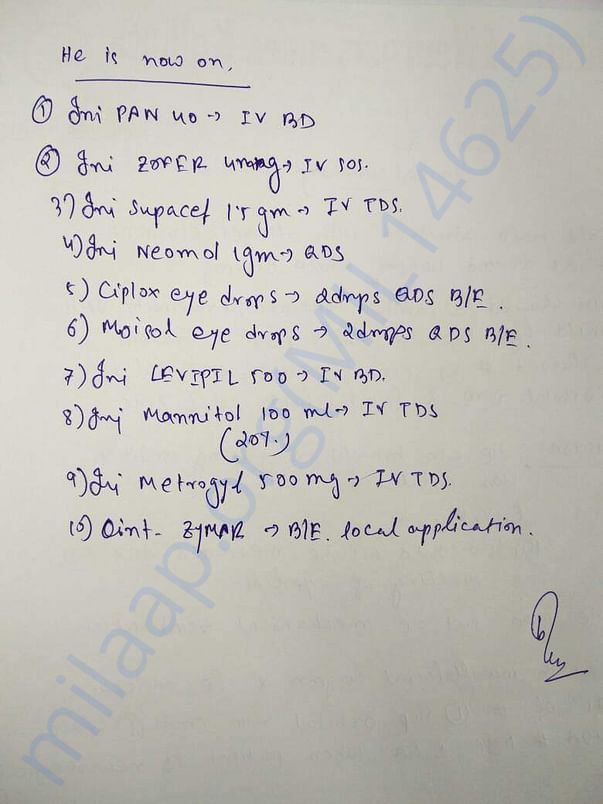 He is now on,
① Inj PAN 40 → IV BD
② Inj ZOFER 4mg → IV SOS.
3) Inj Supacef 1.5 gm → IV TDS.
4) Inj Neomol 1gm → QDS
5) Ciplox eye drops → 2drops QDS B/E.
6) Moisol eye drops → 2drops QDS B/E.
7) Inj LEVIPIL 500 → IV BD.
8) Inj Mannitol 100 ml → IV TDS
(20%)
9) Inj Metrogyl 500mg → IV TDS.
10) Oint- ZYMAR → B/E. local application.
milaap.org(MIL14625)